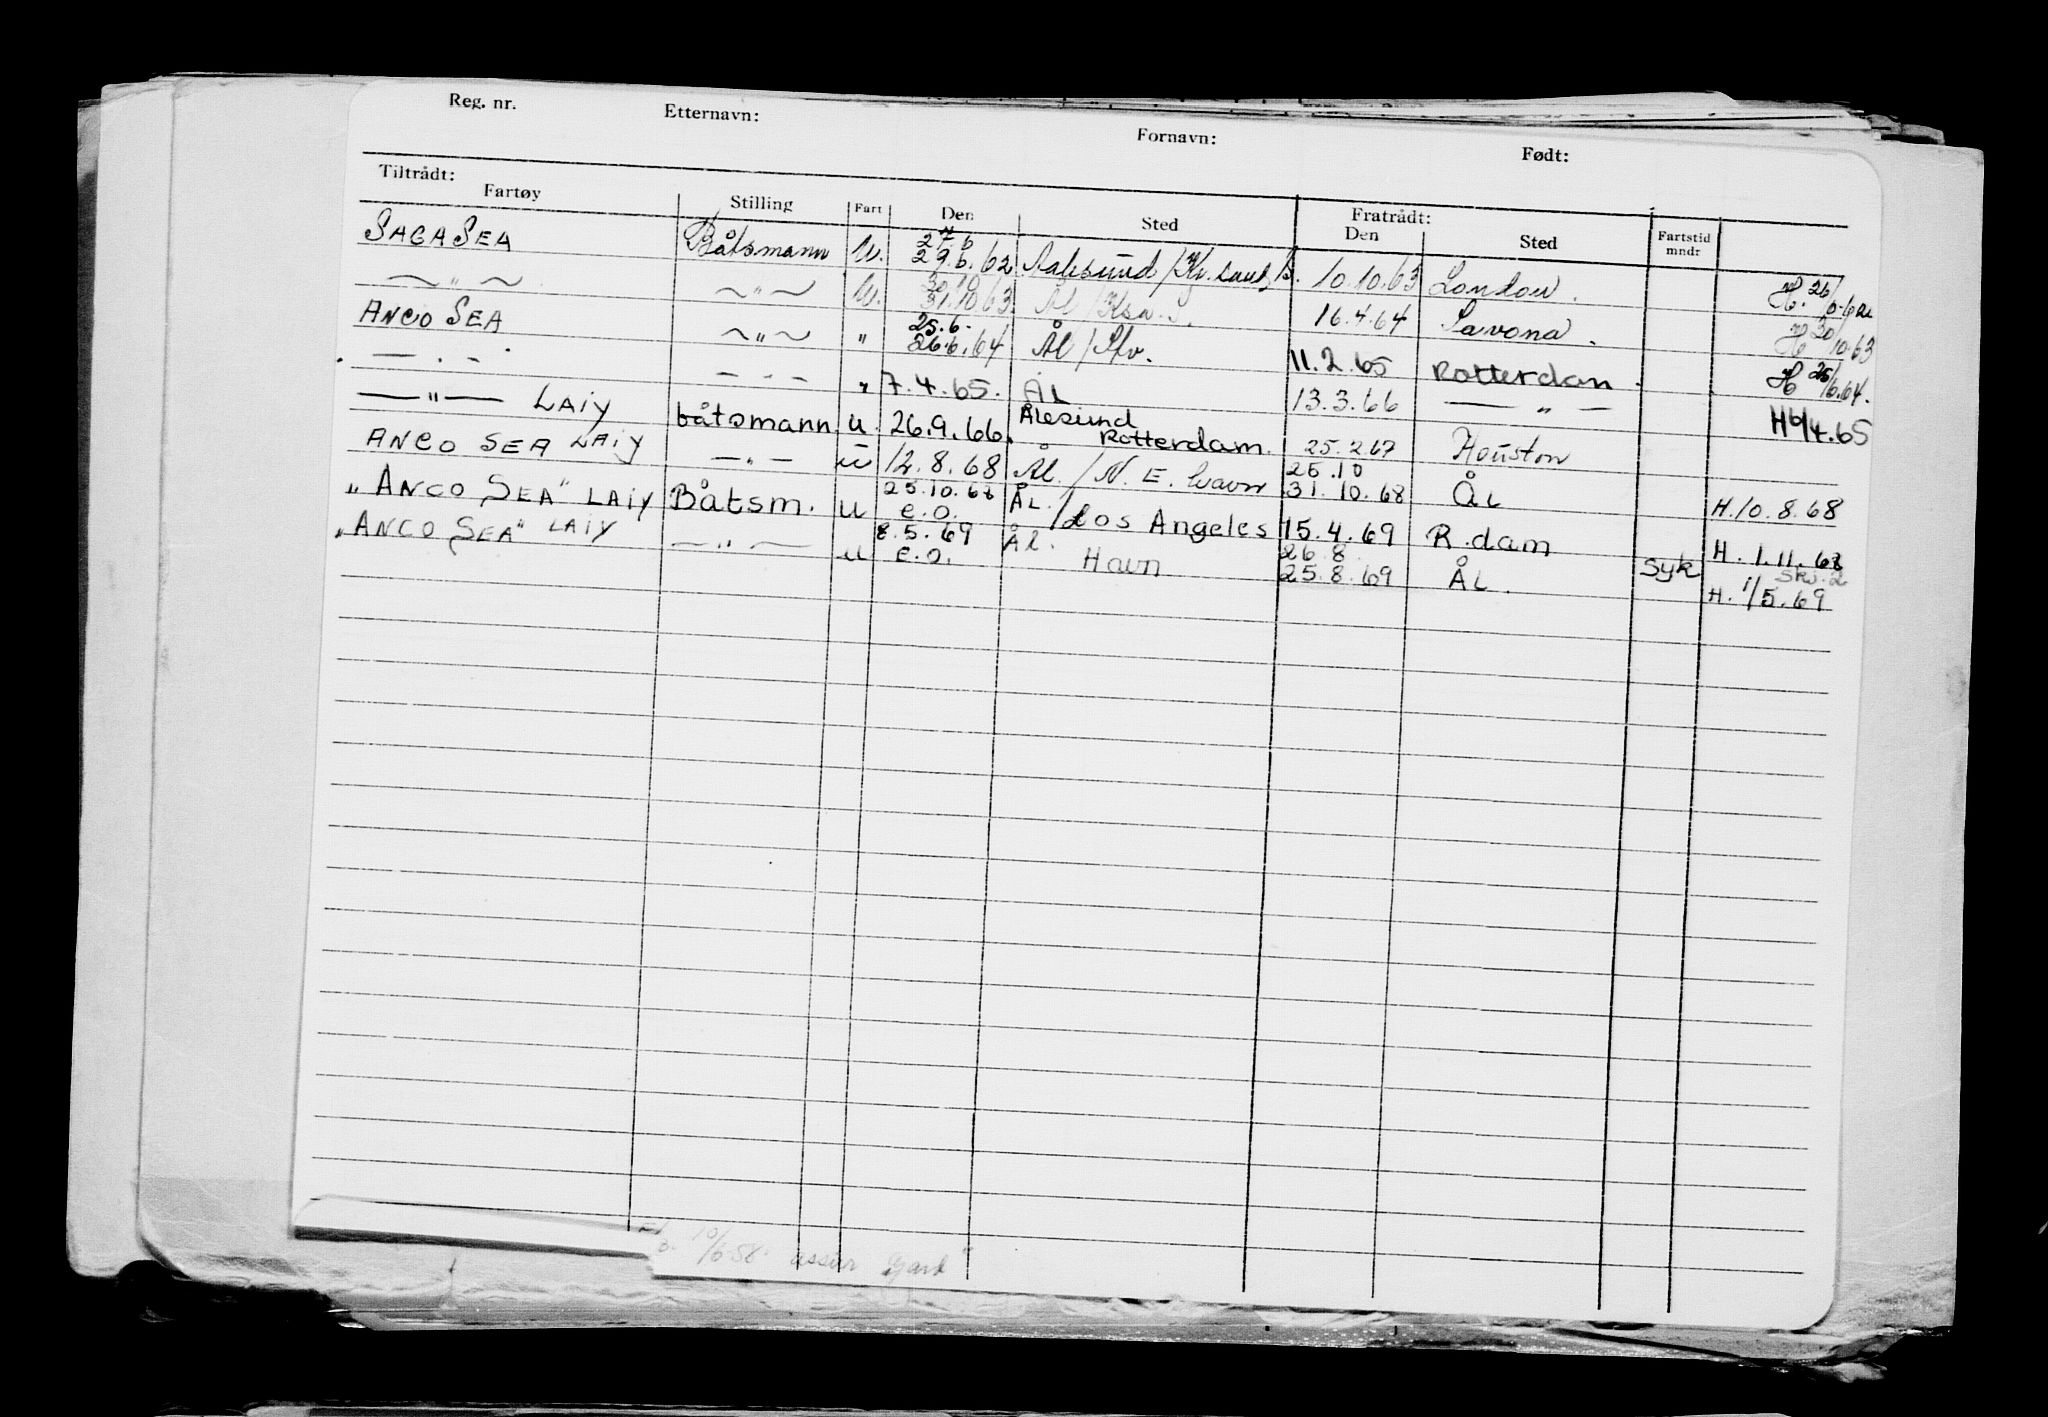 Reg. nr. Etternavn: Fornavn: Født:
Tiltrådt: Fratrådt:
Fartøy Stilling Fart Den Sted Den Sted Fartstid mndr
SAGA SEA Båtsmann U. 27.6 29.6.62 Aalesund / Kr. sand, S. 10.10.63 London. H. 26/6-62
— " — — " — U. 30.10 31.10.63. Ål / Ksn. S. 16.4.64 Savona. H 30/10.63
ANCO SEA — " — " 25.6. 26.6.64 Ål / Stv. 11.2.65 Rotterdam. H 25/6.64.
— . - . — - — " 7.4.65. ÅL 13.3.66 — " — H 6/4.65
— " — LAIY båtsmann u. 26.9.66. Ålesund Rotterdam. 25.2.67 Houston
ANCO SEA LAIY — " — u 12.8.68 Ål. / N. E. havn 25.10 31.10.68 ÅL H. 10.8.68
„ANCO SEA" LAIY Båtsm. u 25.10.68 e.o. ÅL. / Los Angeles 15.4.69 R.dam H. 1.11.68
„ANCO SEA" LAIY — " — u 8.5.69 e.o. Ål. Havn 26.8 25.8.69 ÅL. Syk Skj. 2 H. 1/5.69
10/6 58